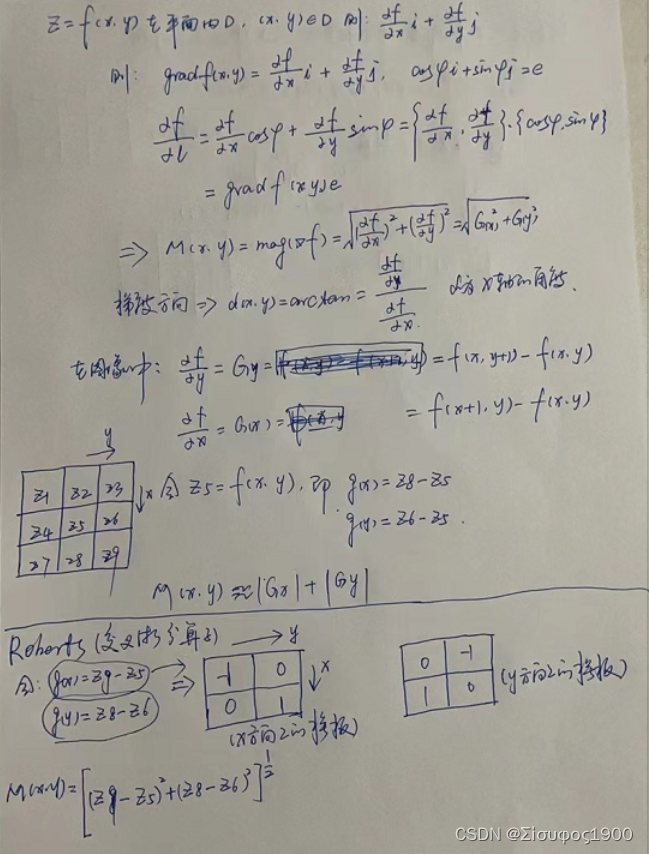 Z=f(x,y)在平面内D,(x,y)∈D 则: ∂f/∂x i + ∂f/∂y j
则: gradf(x,y) = ∂f/∂x i + ∂f/∂y j, cosφi+sinφj=e
∂f/∂l = ∂f/∂x cosφ + ∂f/∂y sinφ = {∂f/∂x, ∂f/∂y}·{cosφ,sinφ}
= gradf(x,y)e
=> M(x,y) = mag(∇f) = √((∂f/∂x)²+(∂f/∂y)²) = √(G(x)²+G(y)²)
梯度方向 => α(x,y)=arctan = (∂f/∂y)/(∂f/∂x) α为x轴的角度.
在图像中: ∂f/∂y = Gy = = f(x,y+1) - f(x,y)
∂f/∂x = G(x) = = f(x+1,y) - f(x,y)
y
x
Z1 Z2 Z3
Z4 Z5 Z6
Z7 Z8 Z9
令 Z5=f(x,y), 即 g(x)=Z8-Z5
g(y)=Z6-Z5.
M(x,y)≈|Gx|+|Gy|
Roberts(交叉微分算子) → y
令: g(x)=Z9-Z5
g(y)=Z8-Z6
=>
-1 0
0 1
x
(x方向上的模板)
0 -1
1 0
(y方向上的模板)
M(x,y)=[(Z9-Z5)²+(Z8-Z6)²]^(1/2)
CSDN @Σίσυφος1900